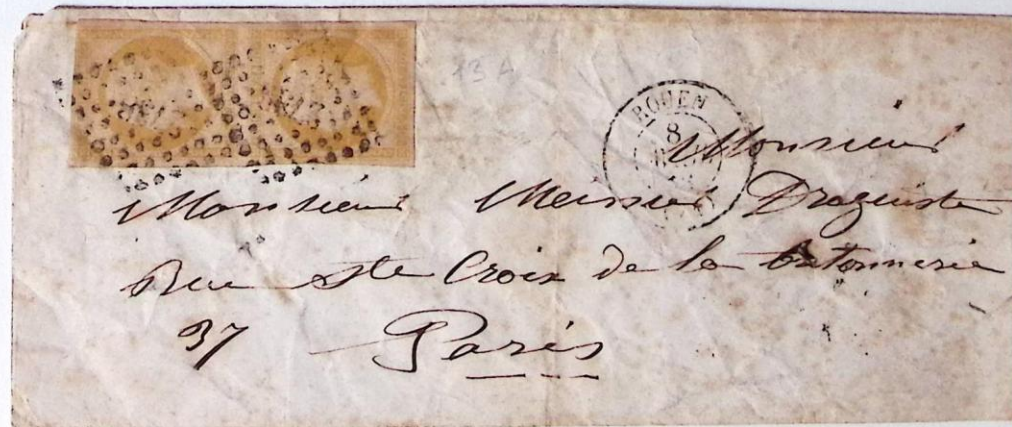 13 A
ROUEN
8
Monsieur
Monsieur Droguiste
Rue Ste Croix de la bretonnerie
37 Paris